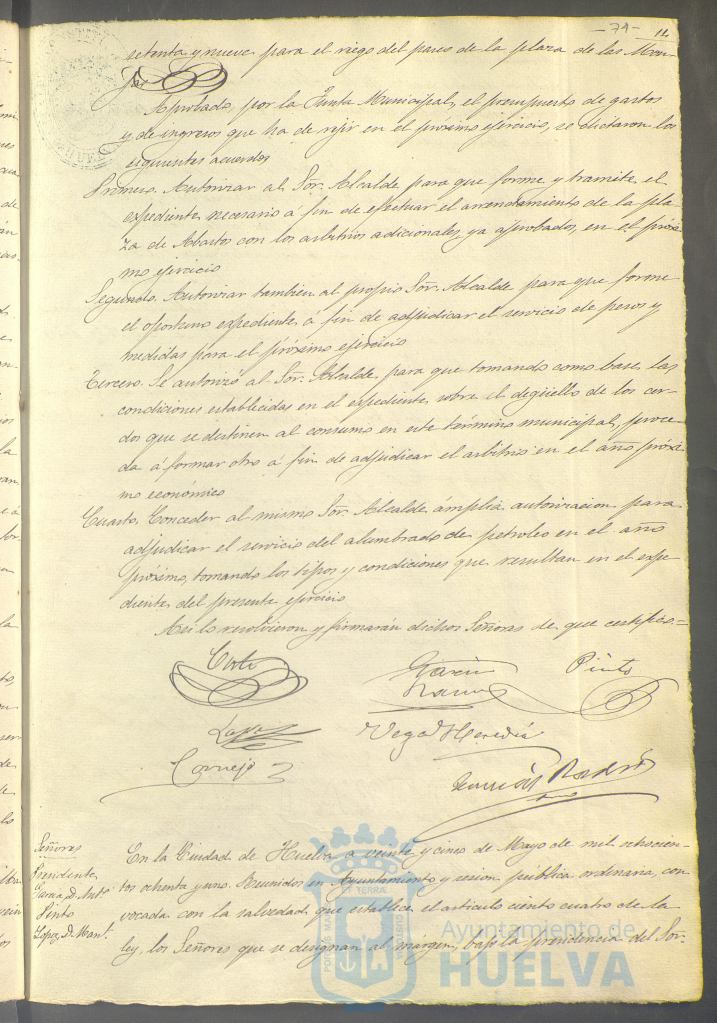 -74- 14
setenta y nueve para el riego del paseo de la plaza de las Mon-
jas
Aprobado, por la Junta Municipal, el presupuesto de gastos
y de ingresos que ha de rijir en el próximo ejercicio, se dictaron los
siguientes acuerdos
Primero. Autorizar al Sor. Alcalde para que forme y tramite el
expediente necesario á fin de efectuar el arrendamiento de la pla-
za de Abastos con los arbitrios adicionales, ya aprobados, en el próxi-
mo ejercicio
Segundo. Autorizar tambien al propio Sor. Alcalde para que forme
el oportuno expediente á fin de adjudicar el servicio de pesos y
medidas para el próximo ejercicio
Tercero. Se autorizó al Sor. Alcalde para que tomando como base las
condiciones establecidas en el expediente sobre el degüello de los cer-
dos que se destinen al consumo en este término municipal, proce-
da á formar otro á fin de adjudicar el arbitrio en el año próxi-
mo económico
Cuarto. Conceder al mismo Sor. Alcalde ámplia autorizacion para
adjudicar el servicio del alumbrado de petroleo en el año
próximo, tomando los tipos y condiciones que resultan en el expe-
diente del presente ejercicio
Asi lo resolvieron y firmarán dichos Señores de que certifico.=
Garcia Pinto
Lopez Vega Heredia
Cornejo
Señores
Presidente,
Garcia, D. Anto
Pinto
Lopez, D. Man1.
En la Ciudad de Huelva a veinte y cinco de Mayo de mil ochocien-
tos ochenta y uno. Reunidos en Ayuntamiento y sesion pública ordinaria, con-
vocada con la salvedad que establece el artículo ciento cuatro de la
ley, los Señores que se designan al márgen, bajo la presidencia del Sor.
Ayuntamiento de
HUELVA